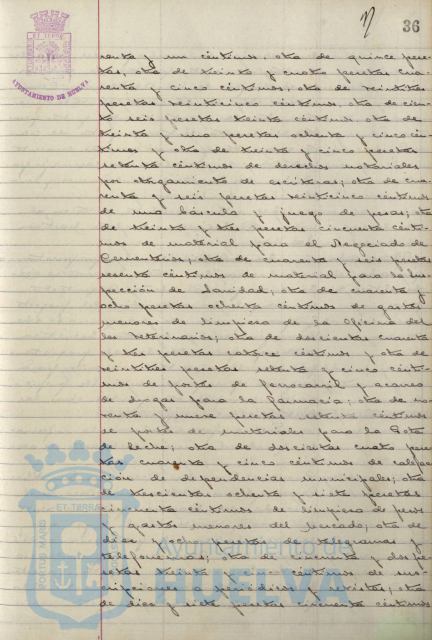 36
AYUNTAMIENTO DE HUELVA
renta y un céntimos, otra de quince pese-
tas, otra de treinta y cuatro pesetas cua-
renta y cinco céntimos, otra de veintitres
pesetas veinticinco céntimos, otra de cien-
to seis pesetas treinta céntimos, otra de
treinta y una pesetas ochenta y cinco cén-
timos y otra de treinta y cinco pesetas
setenta céntimos de derechos notariales
por otorgamiento de escrituras; otra de cua-
renta y seis pesetas veinticinco céntimos
de una báscula y juego de pesas; otra
de treinta y tres pesetas cincuenta cénti-
mos de material para el Negociado de
Cementerios; otra de cuarenta y seis pesetas
sesenta céntimos de material para la Ins-
pección de Sanidad; otra de cuarenta y
ocho pesetas ochenta céntimos de gastos
menores de limpieza de la Oficina de
los Veterinarios; otra de doscientas cuarenta
y tres pesetas catorce céntimos y otra de
veintitres pesetas setenta y cinco cénti-
mos de portes de ferrocarril y acarreo
de drogas para la Farmacia; otra de no-
venta y nueve pesetas setenta céntimos
de portes de materiales para la Gota
de leche; otra de doscientas cuatro pese-
tas cuarenta y cinco céntimos de calefac-
ción de dependencias municipales; otra
de trescientas ochenta y siete pesetas
cincuenta céntimos de limpieza de pesos
y gastos menores del mercado; otra de
diez y ocho pesetas de telegramas y
telefonemas; otra de cincuenta y dos pe-
setas treinta y céntimos de sus-
cripciones a periódicos y revistas; otra
de diez y siete pesetas cincuenta céntimos
ET TERRÆ
PORTUS MARIS
Ayuntamiento de
HUELVA